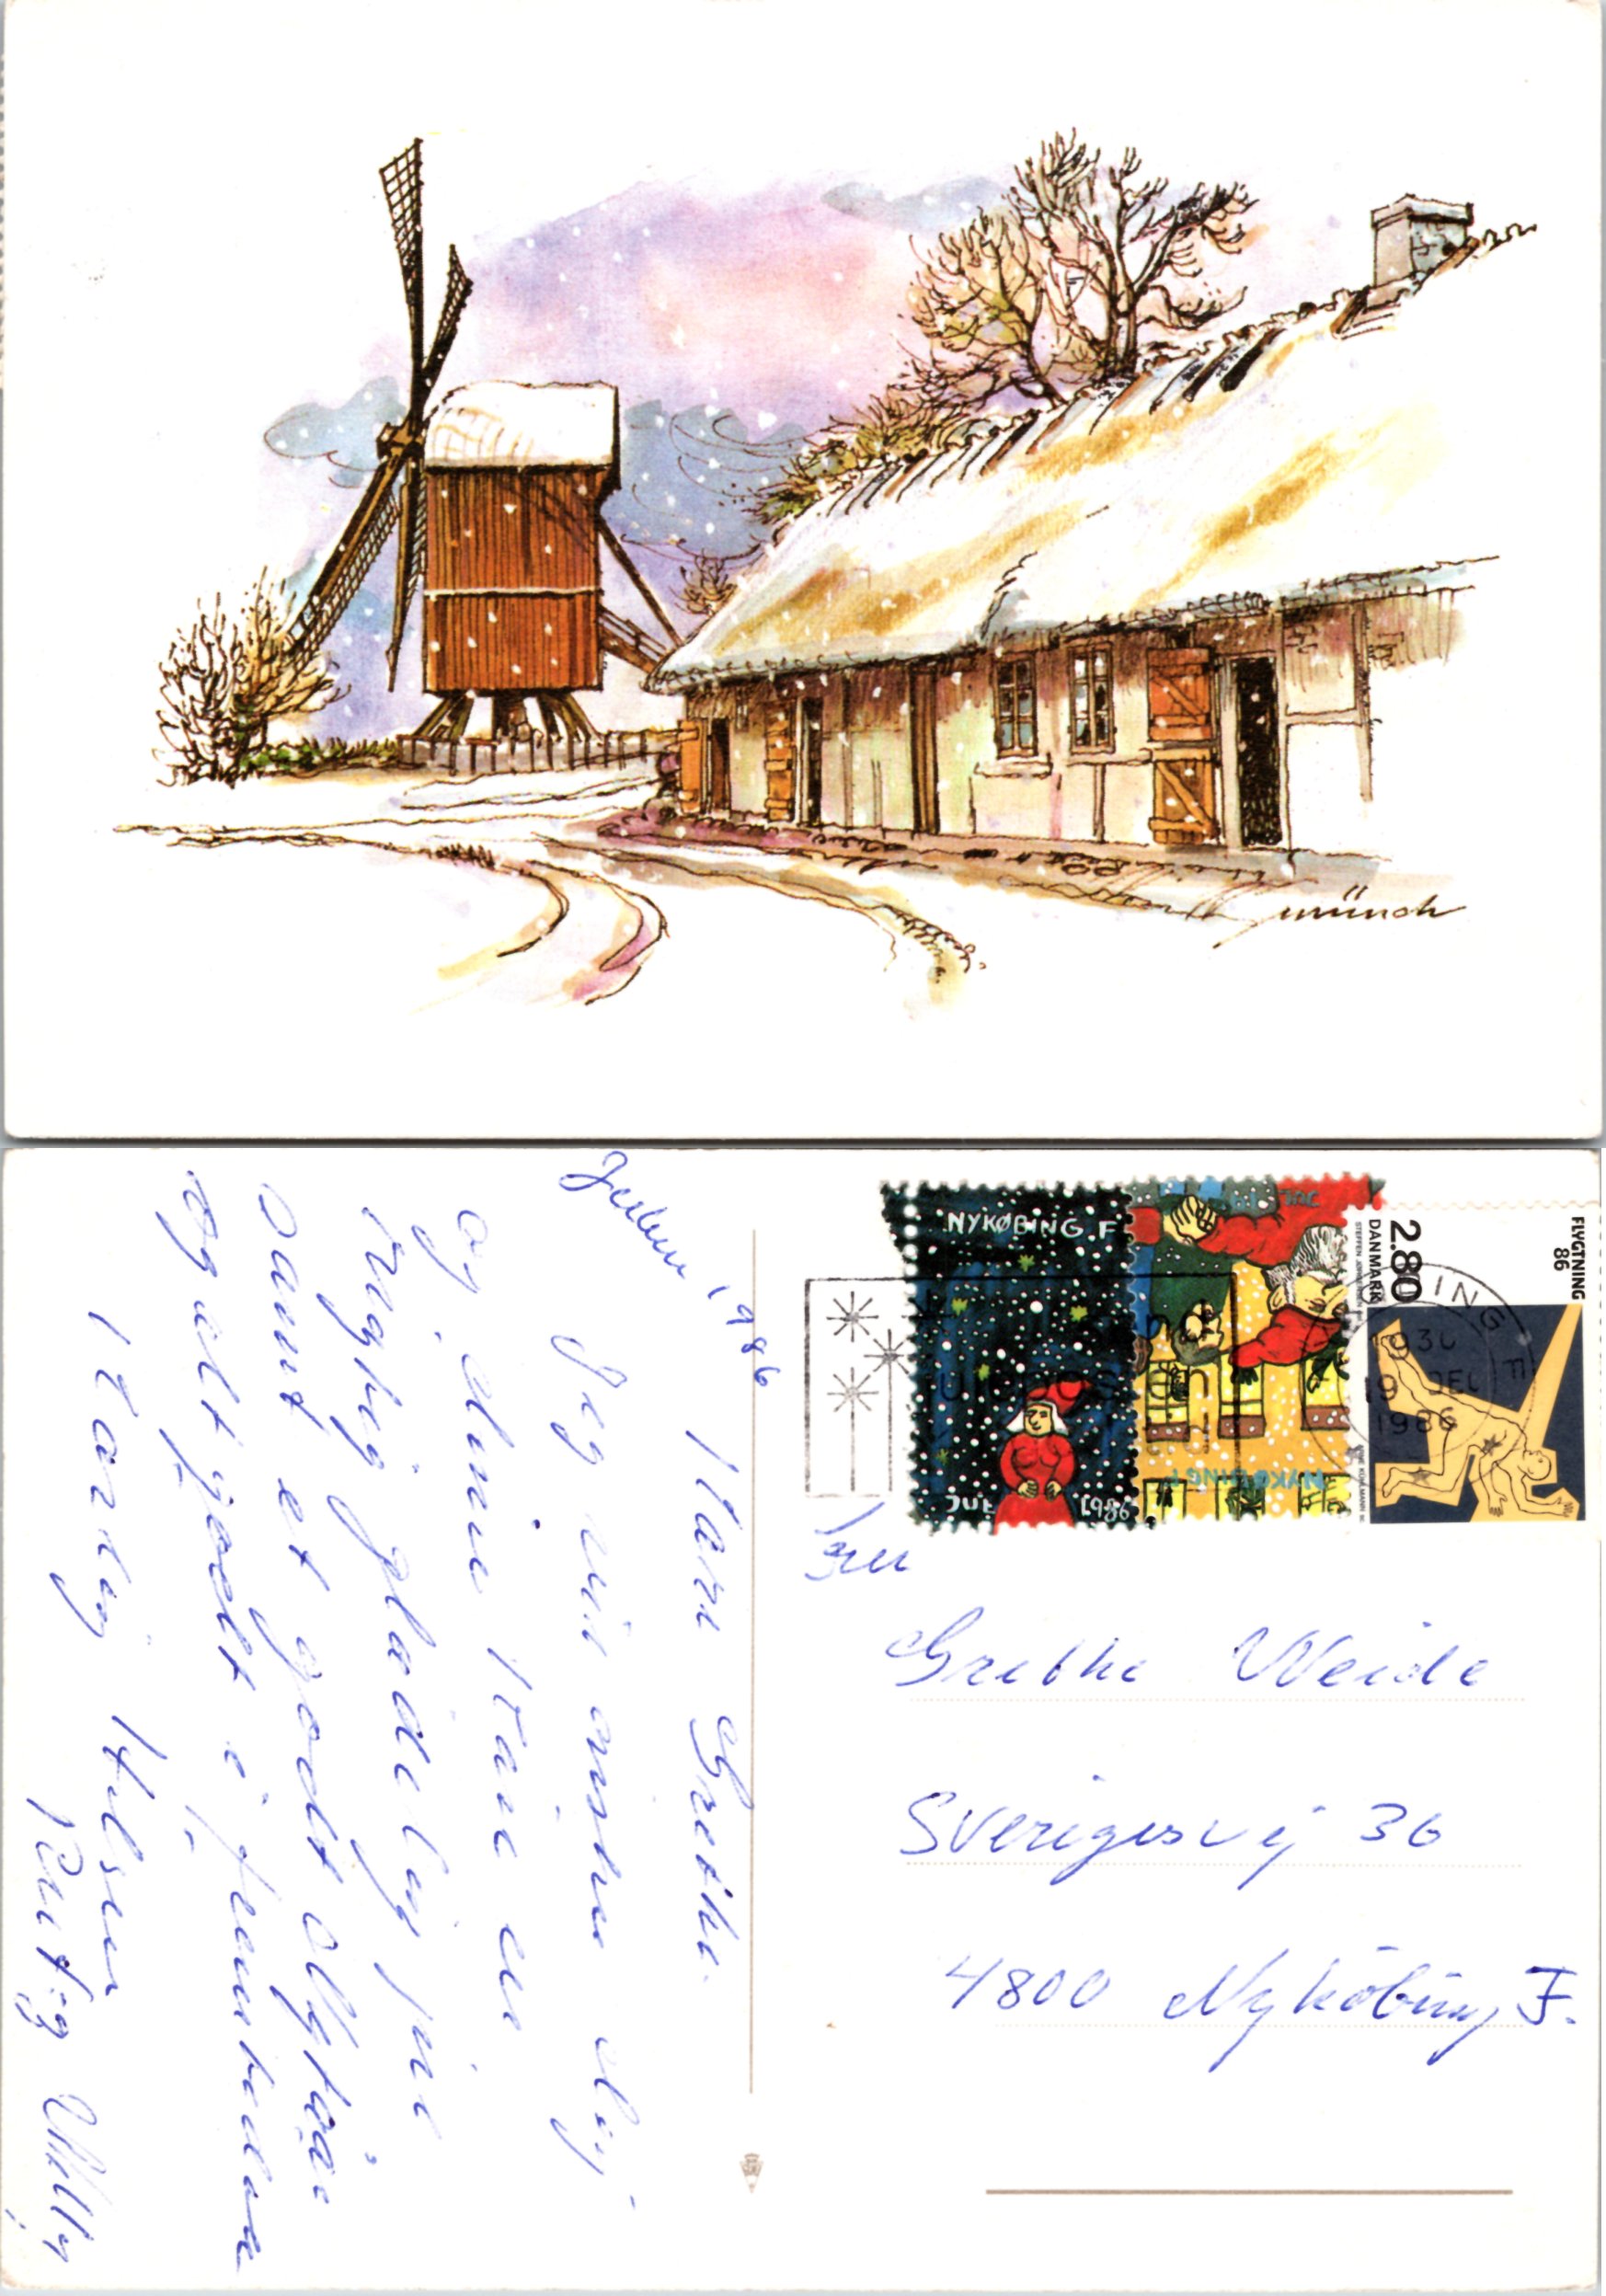 Gmünch
Julen 1986
Kære Grethe.
Jeg vil ønske dig
og dine Kære en
rigtig glædelig jul
samt et godt Nytår
og alt godt i fremtiden
Kærlig Hilsen
Willy
NYKØBING.F
JUL 1986
JUL
NYKØBING F
2.80
DANMARK
FLYGTNING
86
KØBING F
1930
19 DEC
1986
Fru
Grethe Weide
Sverigesvej 36
4800 Nyköbing F.